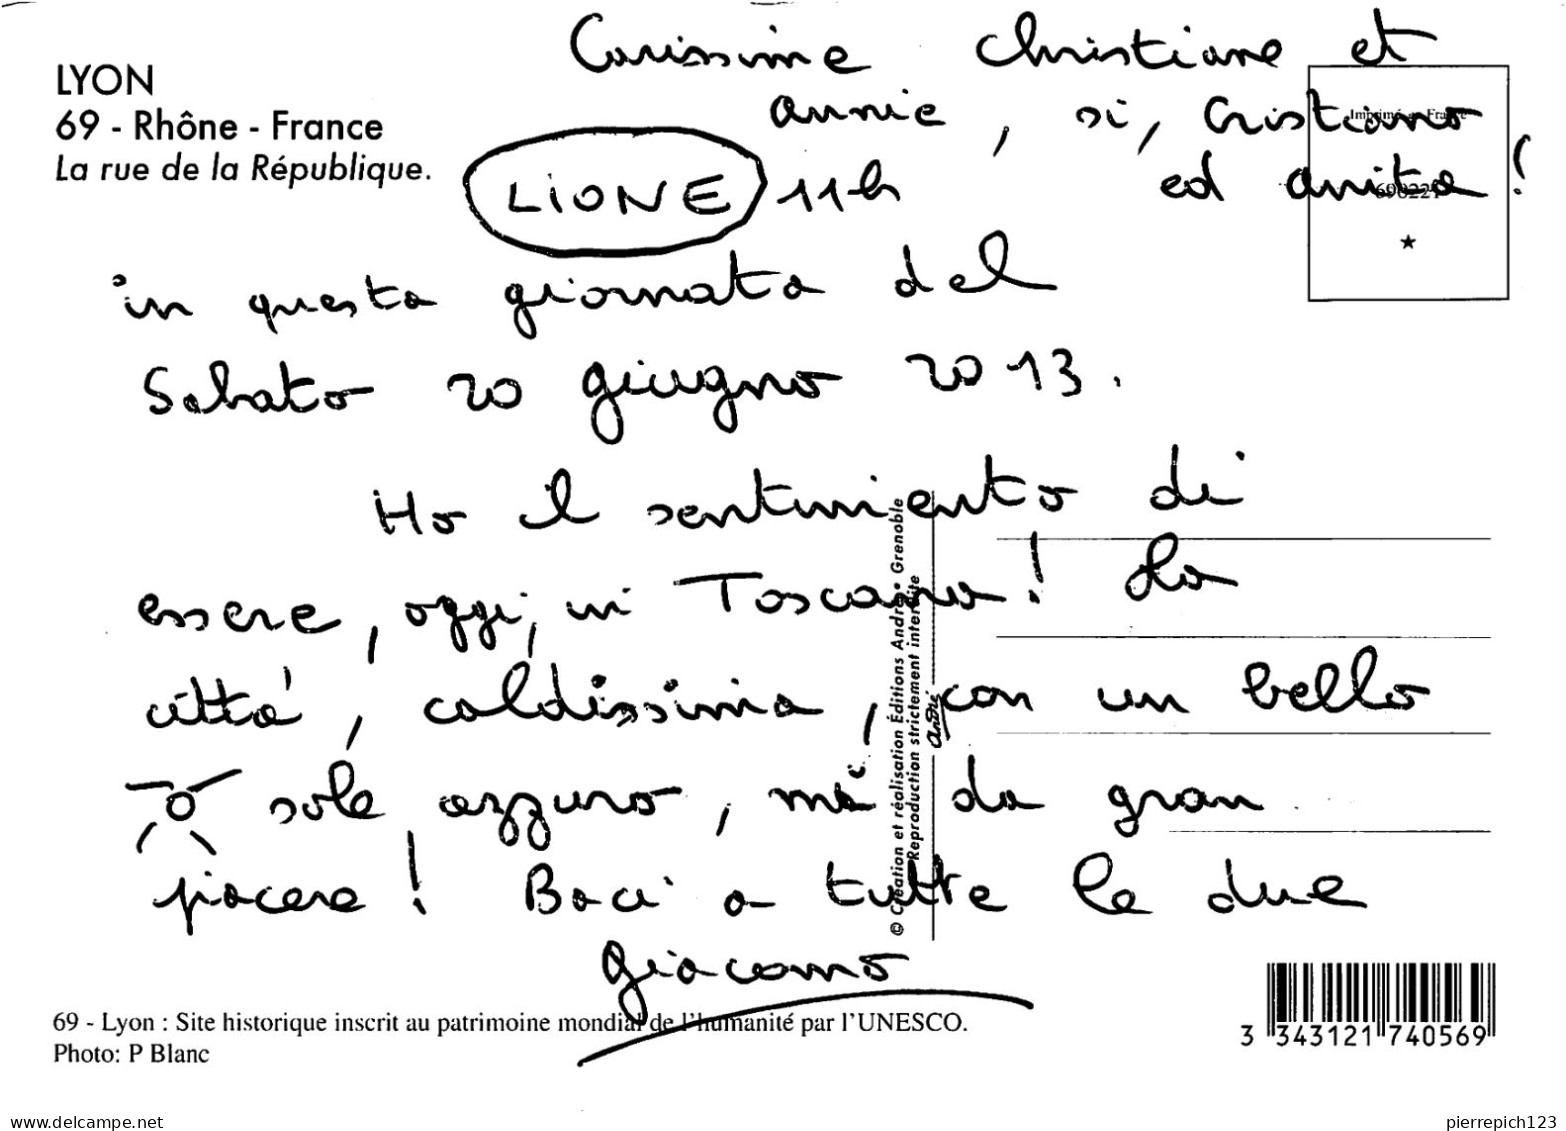 Carissime Christiane et
LYON
69 - Rhône - France
La rue de la République.
Annie, si, Cristiano
Imprimé en France
LIONE 11h
ed Anita!
690221
in questa giornata del
Sabato 20 giugno 2013.
Ho il sentimiento di
essere, oggi, in Toscana! La
città, caldissima, con un bello
sole azzuro, mà da gran
piacere! Baci a tutte le due
Giacomo
© Création et réalisation Éditions André • Grenoble
Reproduction strictement interdite
André
69 - Lyon : Site historique inscrit au patrimoine mondial de l'humanité par l'UNESCO.
Photo: P Blanc
3 343121 740569
www.delcampe.net
pierrepich123